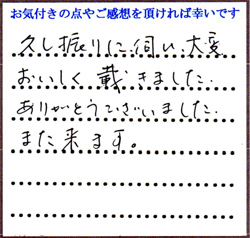 お気付きの点やご感想を頂ければ幸いです
久し振りに伺い、大変
おいしく戴きました.
ありがとうございました.
また来ます。